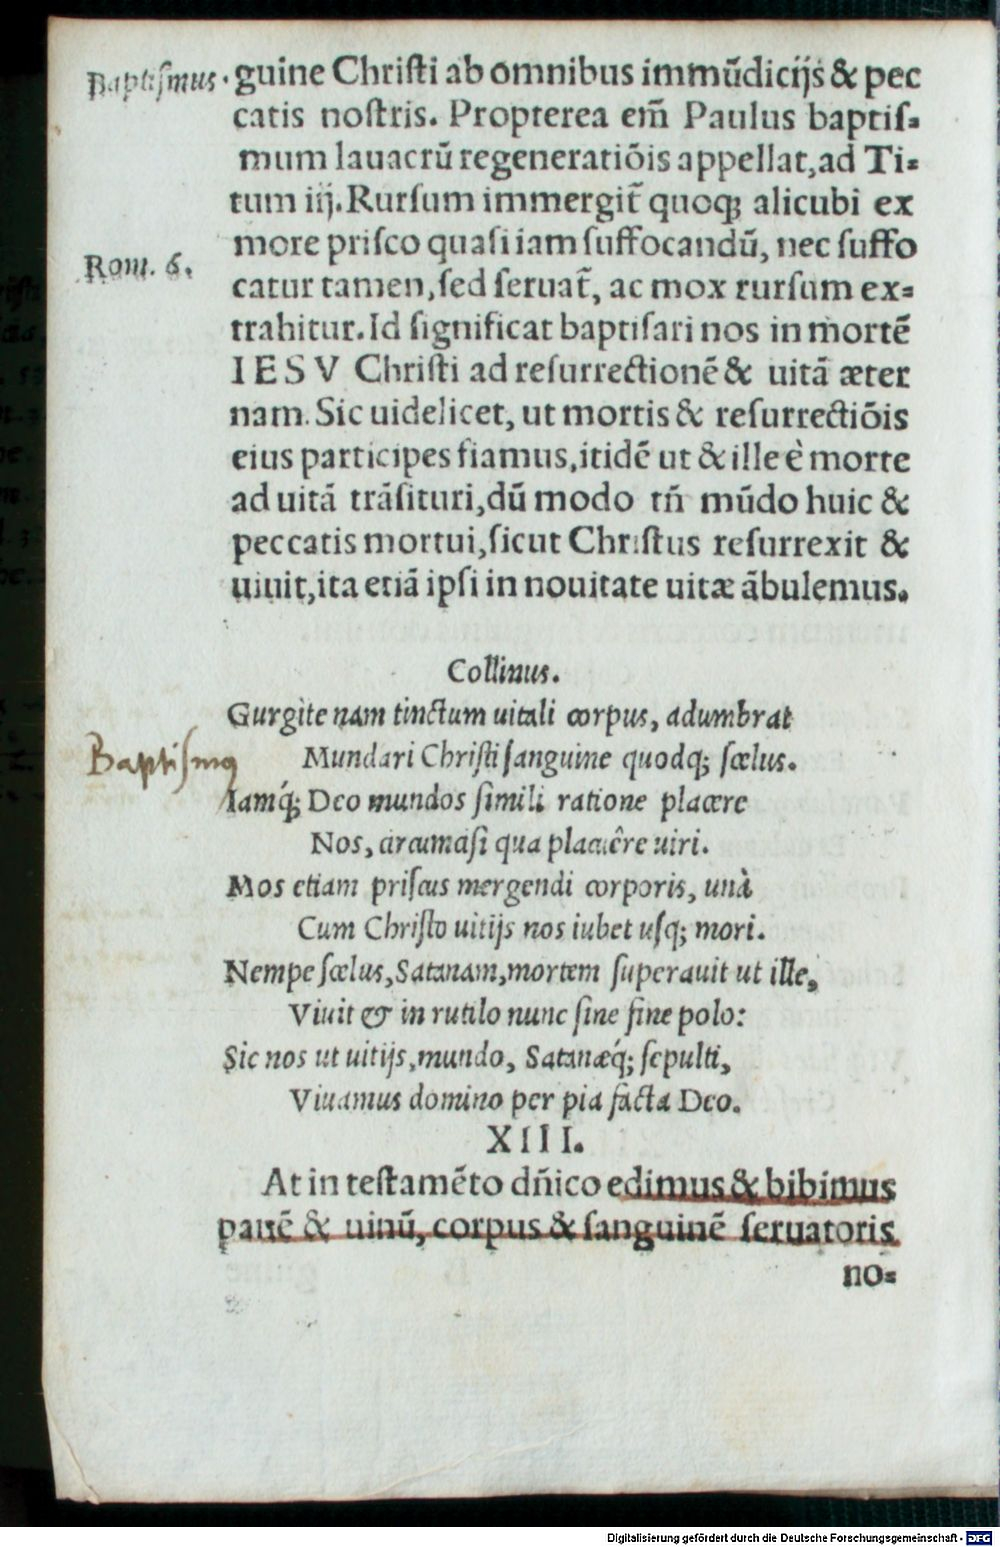 Baptiſmus.
guine Chriſti ab omnibus immũdicijs & pec
catis noſtris. Propterea em̃ Paulus baptiſ⸗
mum lauacrũ regeneratiõis appellat, ad Ti⸗
tum iij. Rurſum immergit̃ quoq; alicubi ex
more priſco quaſi iam ſuffocandũ, nec ſuffo
Rom. 6.
catur tamen, ſed ſeruat̃, ac mox rurſum ex⸗
trahitur. Id ſignificat baptiſari nos in mortẽ
IESV Chriſti ad reſurrectionẽ & uitã æter
nam. Sic uidelicet, ut mortis & reſurrectiõis
eius participes fiamus, itidẽ ut & ille è morte
ad uitã trãſituri, dũ modo tñ mũdo huic &
peccatis mortui, ſicut Chriſtus reſurrexit &
uiuit, ita etiã ipſi in nouitate uitæ ãbulemus.
Collinus.
Gurgite nam tinctum uitali corpus, adumbrat
Baptiſmq
Mundari Chriſti ſanguine quodq; ſcelus.
Iamq́; Deo mundos ſimili ratione placere
Nos, circumciſi qua placuêre uiri.
Mos etiam priſcus mergendi corporis, unà
Cum Chriſto uitijs nos iubet uſq; mori.
Nempe ſcelus, Satanam, mortem ſuperauit ut ille,
Viuit & in rutilo nunc ſine fine polo:
Sic nos ut uitijs, mundo, Satanæq́; ſepulti,
Viuamus domino per pia facta Deo.
XIII.
At in teſtamẽto dñico edimus & bibimus
panẽ & uinũ, corpus & ſanguinẽ ſeruatoris
no⸗
Digitalisierung gefördert durch die Deutsche Forschungsgemeinschaft - DFG